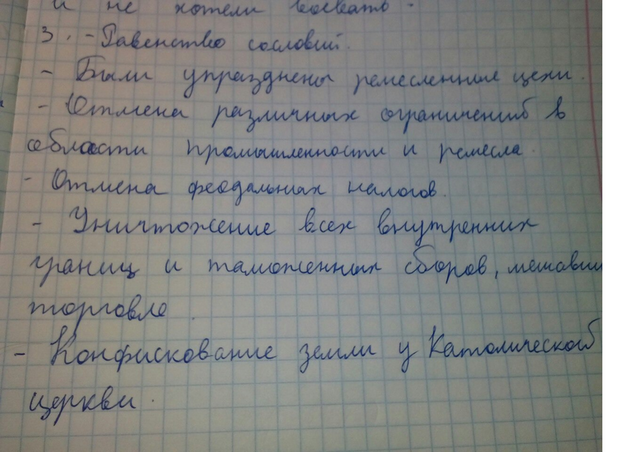 и не хотели воевать.
3. - Равенство сословий.
- Были упразднены ремесленные цехи.
- Отмена различных ограничений в
области промышленности и ремесла.
- Отмена феодальных налогов.
- Уничтожение всех внутренних
границ и таможенных сборов, мешавши
торговле.
- Конфискование земли у Католической
церкви.